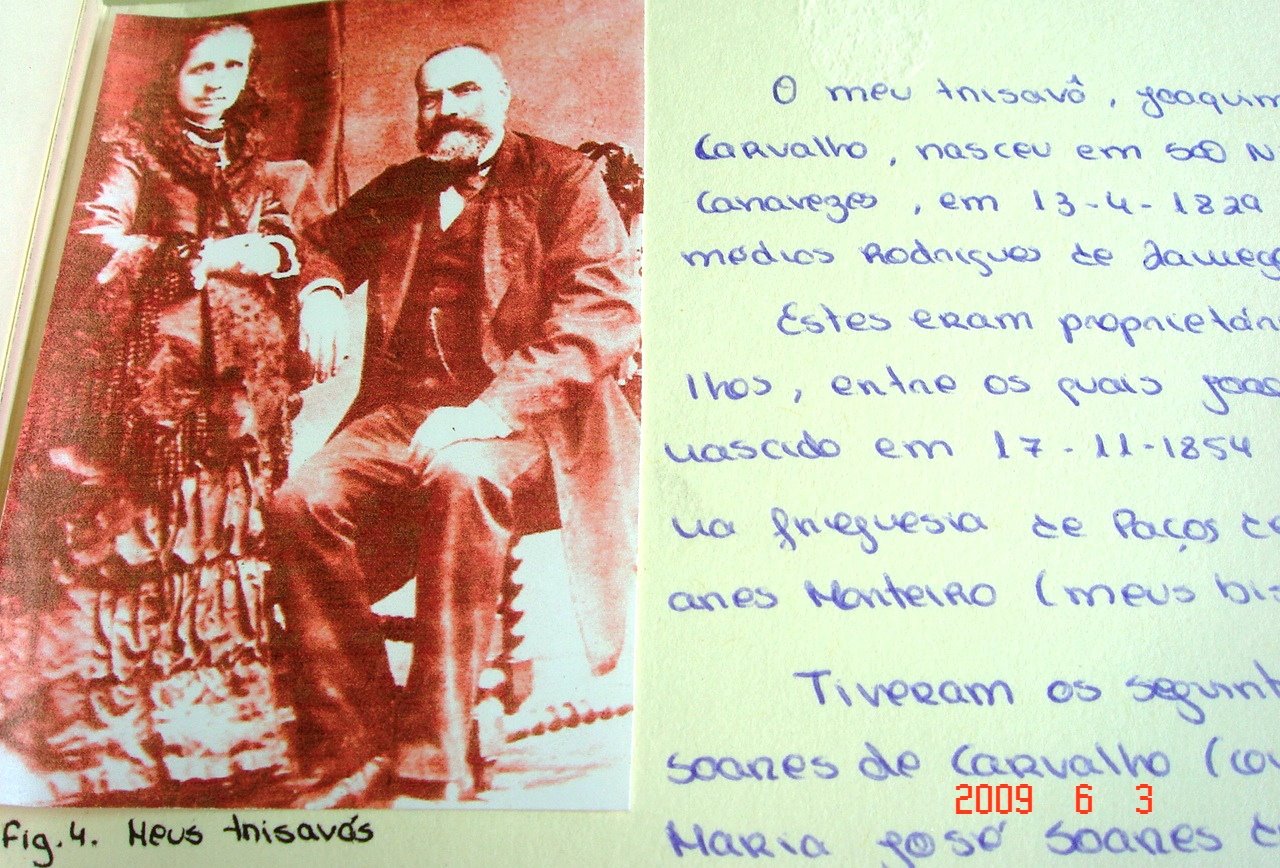 O meu trisavô, Joaquim
Carvalho, nasceu em São N
Canavezes, em 13-4-1829
médios Rodrigues de
Estes eram proprietár
lhos, entre os quais Joaq
nascido em 17-11-1854
na frieguesia de Paços de
anes Monteiro (meus bis
Tiveram os seguint
soares de Carvalho (co
Maria José Soares d
Fig. 4. Meus trisavós
2009 6 3